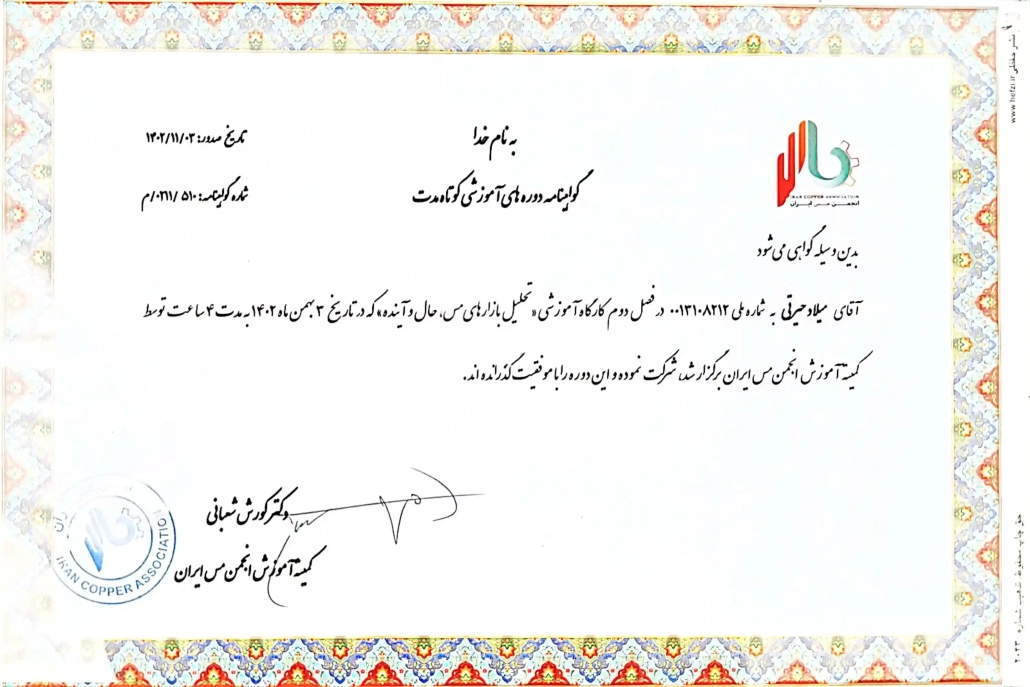 به نام خدا
تاریخ صدور: ۱۴۰۲/۱۱/۰۳
گواهینامه دوره های آموزشی کوتاه مدت
شماره گواهینامه: ۵۱۰ /۰۲۱۱/م
IRAN COPPER ASSOCIATION
انجمن مس ایران
بدین وسیله گواهی می شود
آقای میلاد حیرتی به شماره ملی ۰۰۱۳۱۰۸۲۱۲ در فصل دوم کارگاه آموزشی «تحلیل بازارهای مس، حال و آینده» که در تاریخ ۳ بهمن ماه ۱۴۰۲ به مدت ۴ ساعت توسط
کمیته آموزش انجمن مس ایران برگزار شد، شرکت نموده و این دوره را با موفقیت گذرانده اند.
دکتر کورش شعبانی
کمیته آموزش انجمن مس ایران
IRAN COPPER ASSOCIATION
نشر حفظی www.hefzi.ir
حق چاپ محفوظ